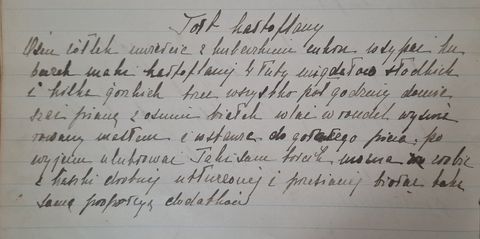 Tort kartoflany
Osiem żółtek umieścić z kubeczkiem cukru wsypać ku
beczek mąki kartoflanej 4 łuty migdałów słodkich
i kilka gorzkich trzeć wszystko pół godziny domie
szać pianę z ośmiu białek wlać w rondel wysma
rowany masłem i wstawić do gorącego pieca, po
wyjęciu ulukrować Taki sam torcik można robić
z kaszki drobnej utłuczonej i przesianej biorąc taką
samą proporcyę dodatków